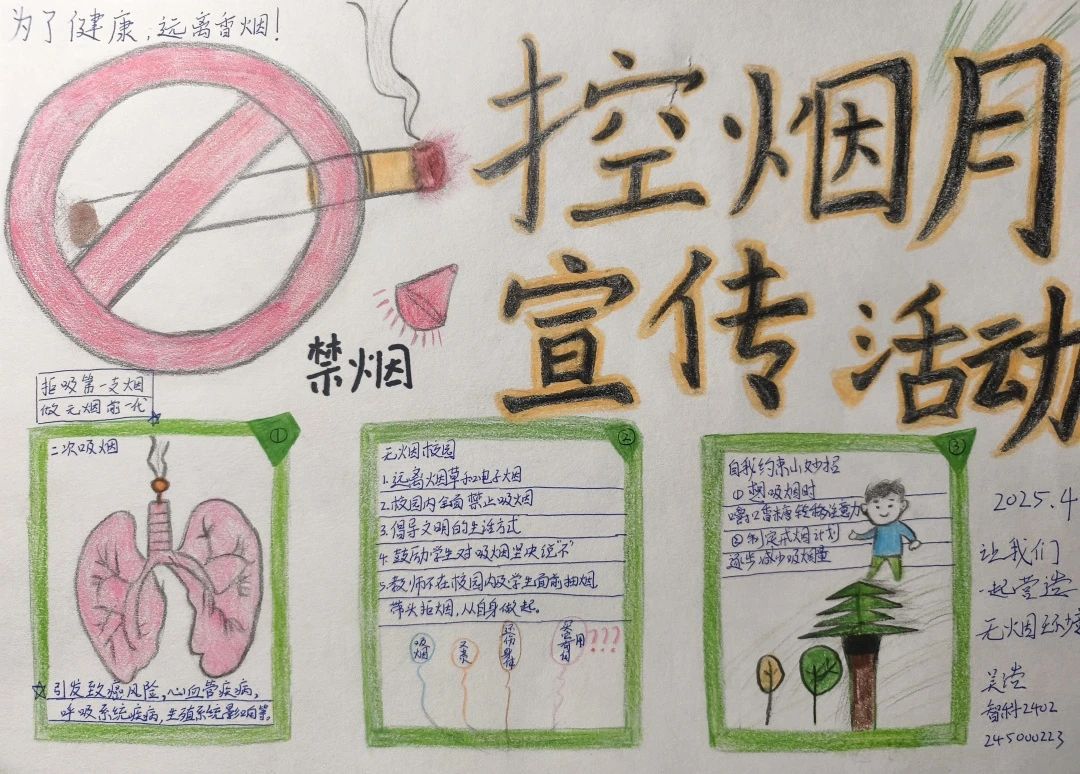 为了健康，远离香烟！
控烟月
宣传 活动
禁烟
拒吸第一支烟
做无烟前一代
①
二次吸烟
☆引发致癌风险，心血管疾病，
呼吸系统疾病，生殖系统影响等。
②
无烟校园
1.远离烟草和电子烟
2.校园内全面禁止吸烟
3.倡导文明的生活方式
4.鼓励学生对吸烟坚决说"不"
5.教师不在校园内及学生面前抽烟，
带头拒烟，从自身做起。
吸烟
又
还伤身体
究竟有何用???
③
自我约束小妙招
①想吸烟时
嚼口香糖转移注意力
②制定戒烟计划
逐步减少吸烟量
2025.4
让我们
一起营造
无烟环境
智科2402
245000223